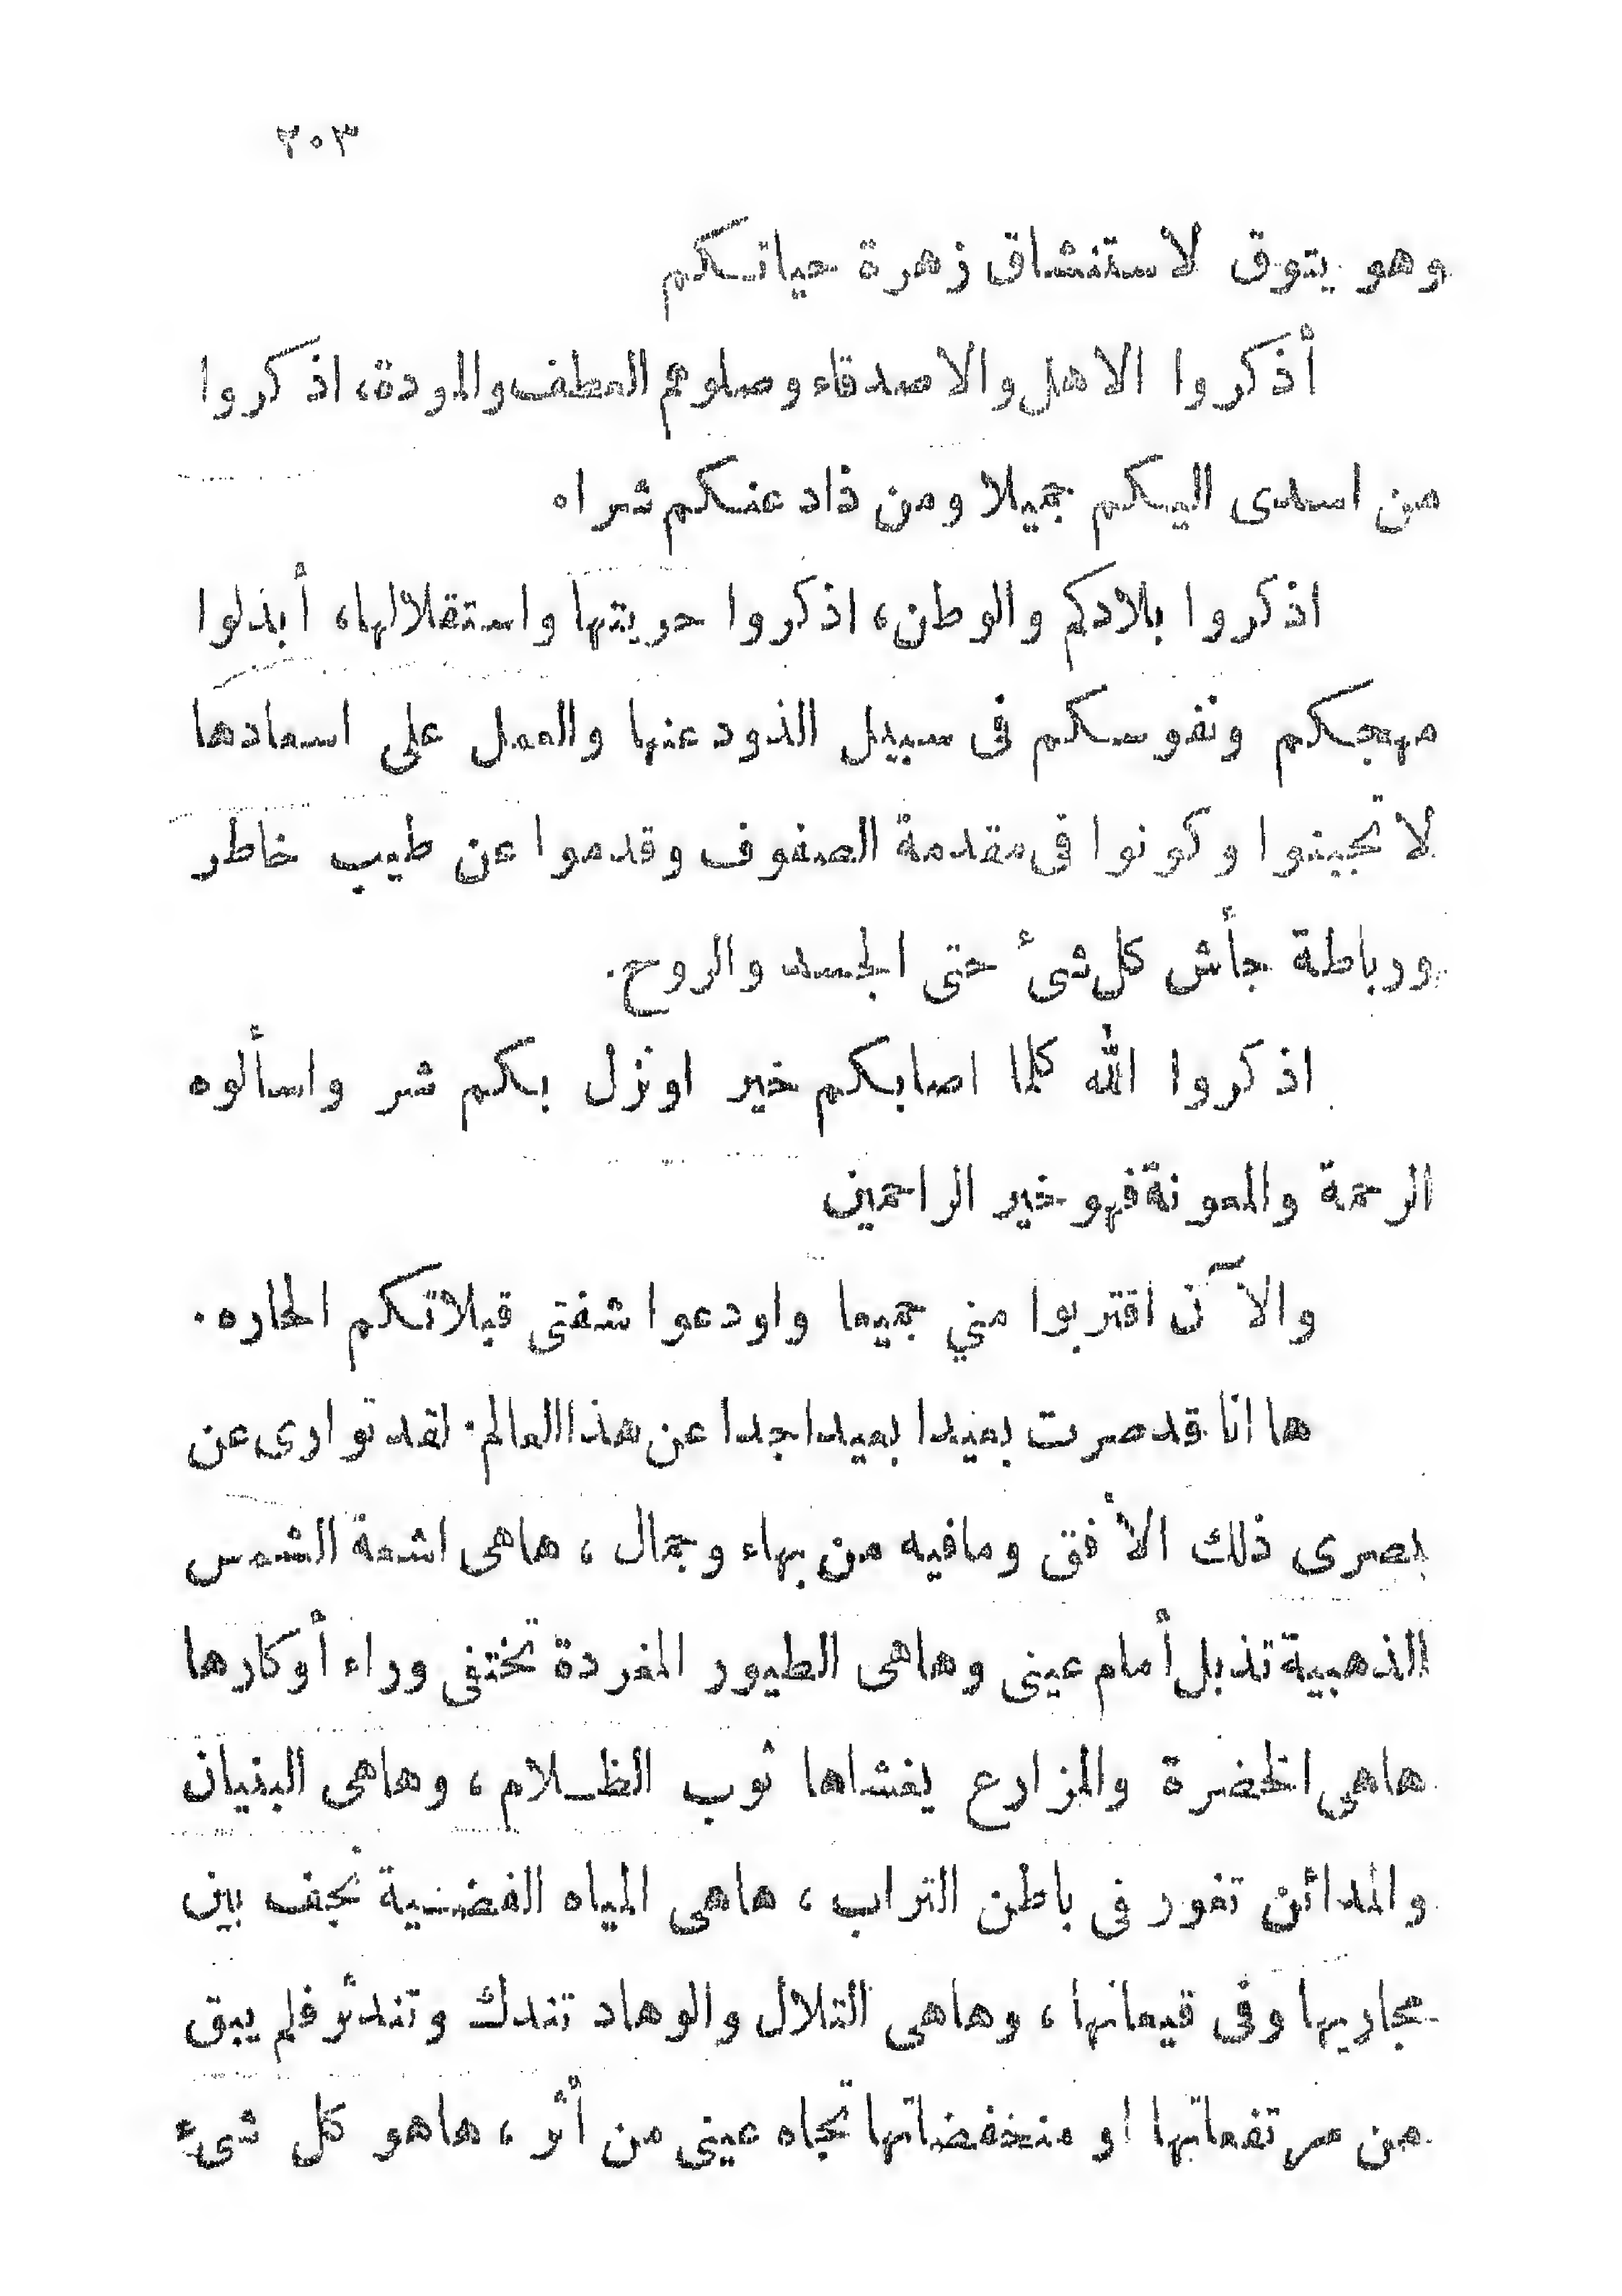 ٢٠٣
وهو يتوق لاستنشاق زهرة حياتكم
أذكروا الاهل والاصدقاء وصلوهم العطف والمودة، اذكروا
من اسدى اليكم جميلا ومن ذاد عنكم شراه
اذكروا بلادكم والوطن، اذكروا حريتها واستقلالها، أبذلوا
مهجكم ونفوسكم فى سبيل الذود عنها والعمل على اسعادها
لا تجبنوا وكونوا فى مقدمة الصفوف وقدموا عن طيب خاطر
ورباطة جأش كل شئ حتى الجسد والروح.
اذكروا الله كلما اصابكم خير او نزل بكم شر واسألوه
الرحمة والمعونة فهو خير الراحمين
والآن اقتربوا مني جميعا واودعوا شفتى قبلاتكم الحاره.
ها انا قد صرت بعيدا بعيدا جدا عن هذا العالم. لقد توارى عن
بصرى ذلك الأفق ومافيه من بهاء وجمال ، هاهى اشعة الشمس
الذهبية تذبل أمام عينى وهاهى الطيور المغردة تختفى وراء أوكارها
هاهى الخضرة والمزارع يغشاها ثوب الظلام ، وهاهى البنيان
والمدائن تغور فى باطن التراب ، هاهى المياه الفضية تجف بين
مجاريها وفى قيعانها ، وهاهى التلال والوهاد تندك وتندثر فلم يبق
من مرتفعاتها او منخفضاتها تجاه عينى من أثر ، هاهو كل شىء